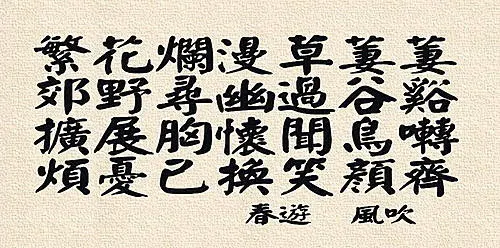 繁花爛漫草萋萋
郊野尋幽過谷谿
擴展胸懷聞鳥囀
煩憂已換笑顔齊
春遊 風吹